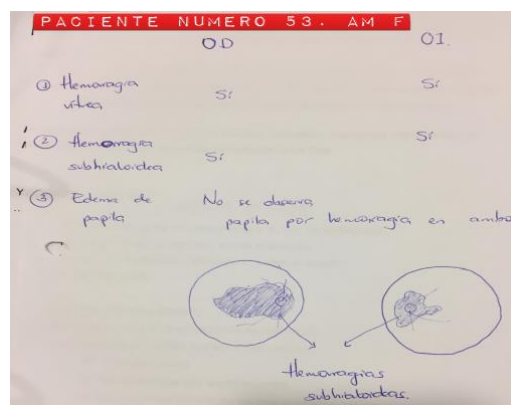 PACIENTE NUMERO 53. AM F
OD OI.
① Hemorragia vítrea Sí Sí
② Hemorragia subhialoidea Sí Sí
Y ③ Edema de papila No se observa
papila por hemorragia en ambo
Hemorragias
subhialoideas.